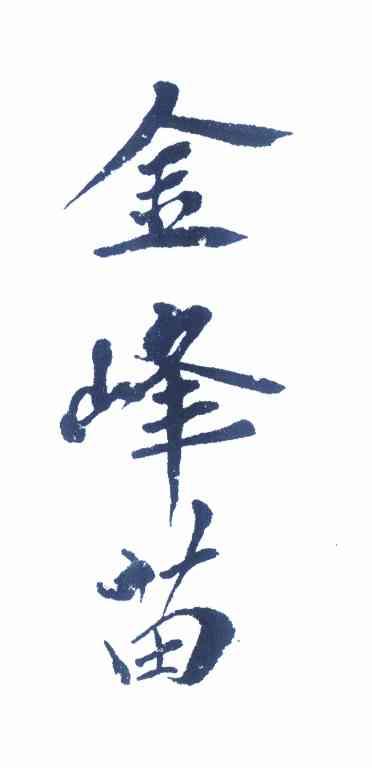 金峰苗